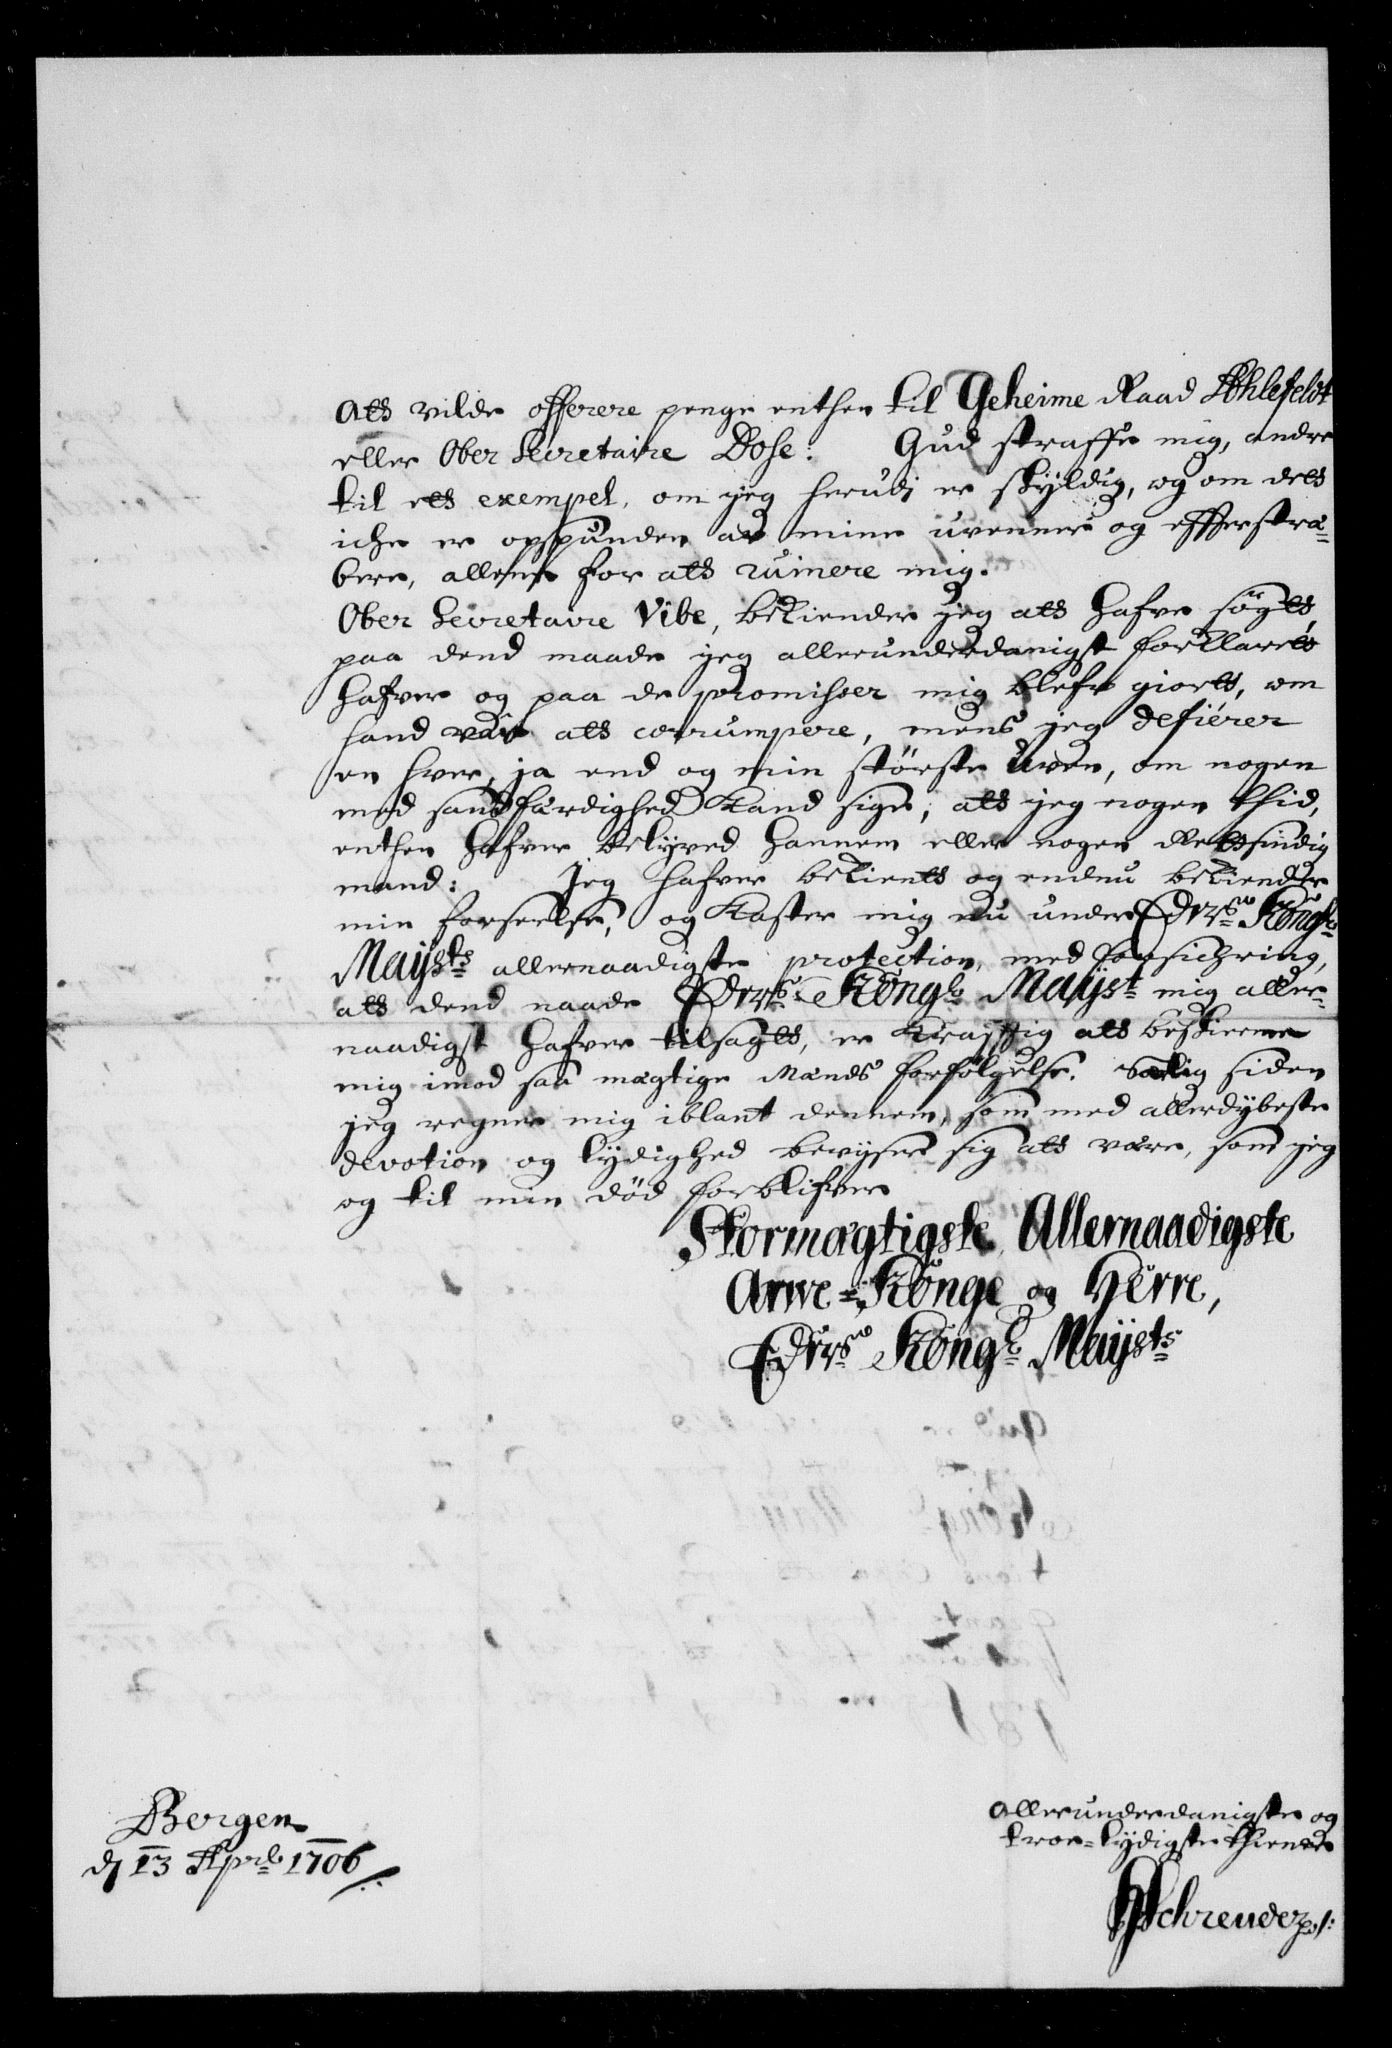 att vilde offerere penge enthen til Geheime Raad Ahlefeldt
eller Ober Secretaire Dose: Gud straffe mig, andre
til ett exempel, om jeg herudj er skyldig, og om dett
iche er opspunden av mine uvenner og efferstræ=
bere, allene for att ruinere mig.
Ober Secretaire Vibe, bekiender jeg att hafve søgtt,
paa dend maade jeg allerunderdanigst forklarett
hafver og paa de promisser mig blefv giortt, om
hand var att corrumpere, mens jeg defiérer
en hver, ja end og min störste Uven, om nogen
med sandfærdighed kand sige, att jeg nogen thid,
enthen hafver belyved hannem eller nogen Rettsindig
mand: Jeg hafver bekientt og endnu bekiender
min forseelse, og kaster mig nu under Eders Kongl
Maysts allernaadigste protection, med forsichring,
att dend naade Eders Kongl Mayst mig aller=
naadigst hafver tilsagtt, er kräfftig att beskierme
mig imod saa mægtige Mænds forfölgelse, særlig siden
jeg regner mig iblant dennem, som med allerdybeste
devotion og lydighed bevyser sig att være, som jeg
og til min död forblifver
Stormægtigste Allernaadigste
Arve=Konge og Herre,
Eders Kongl Maysts
Bergen
d 13 Aprl 1706
Allerunderdanigste og
troe=lydigste thiener
Schreuder